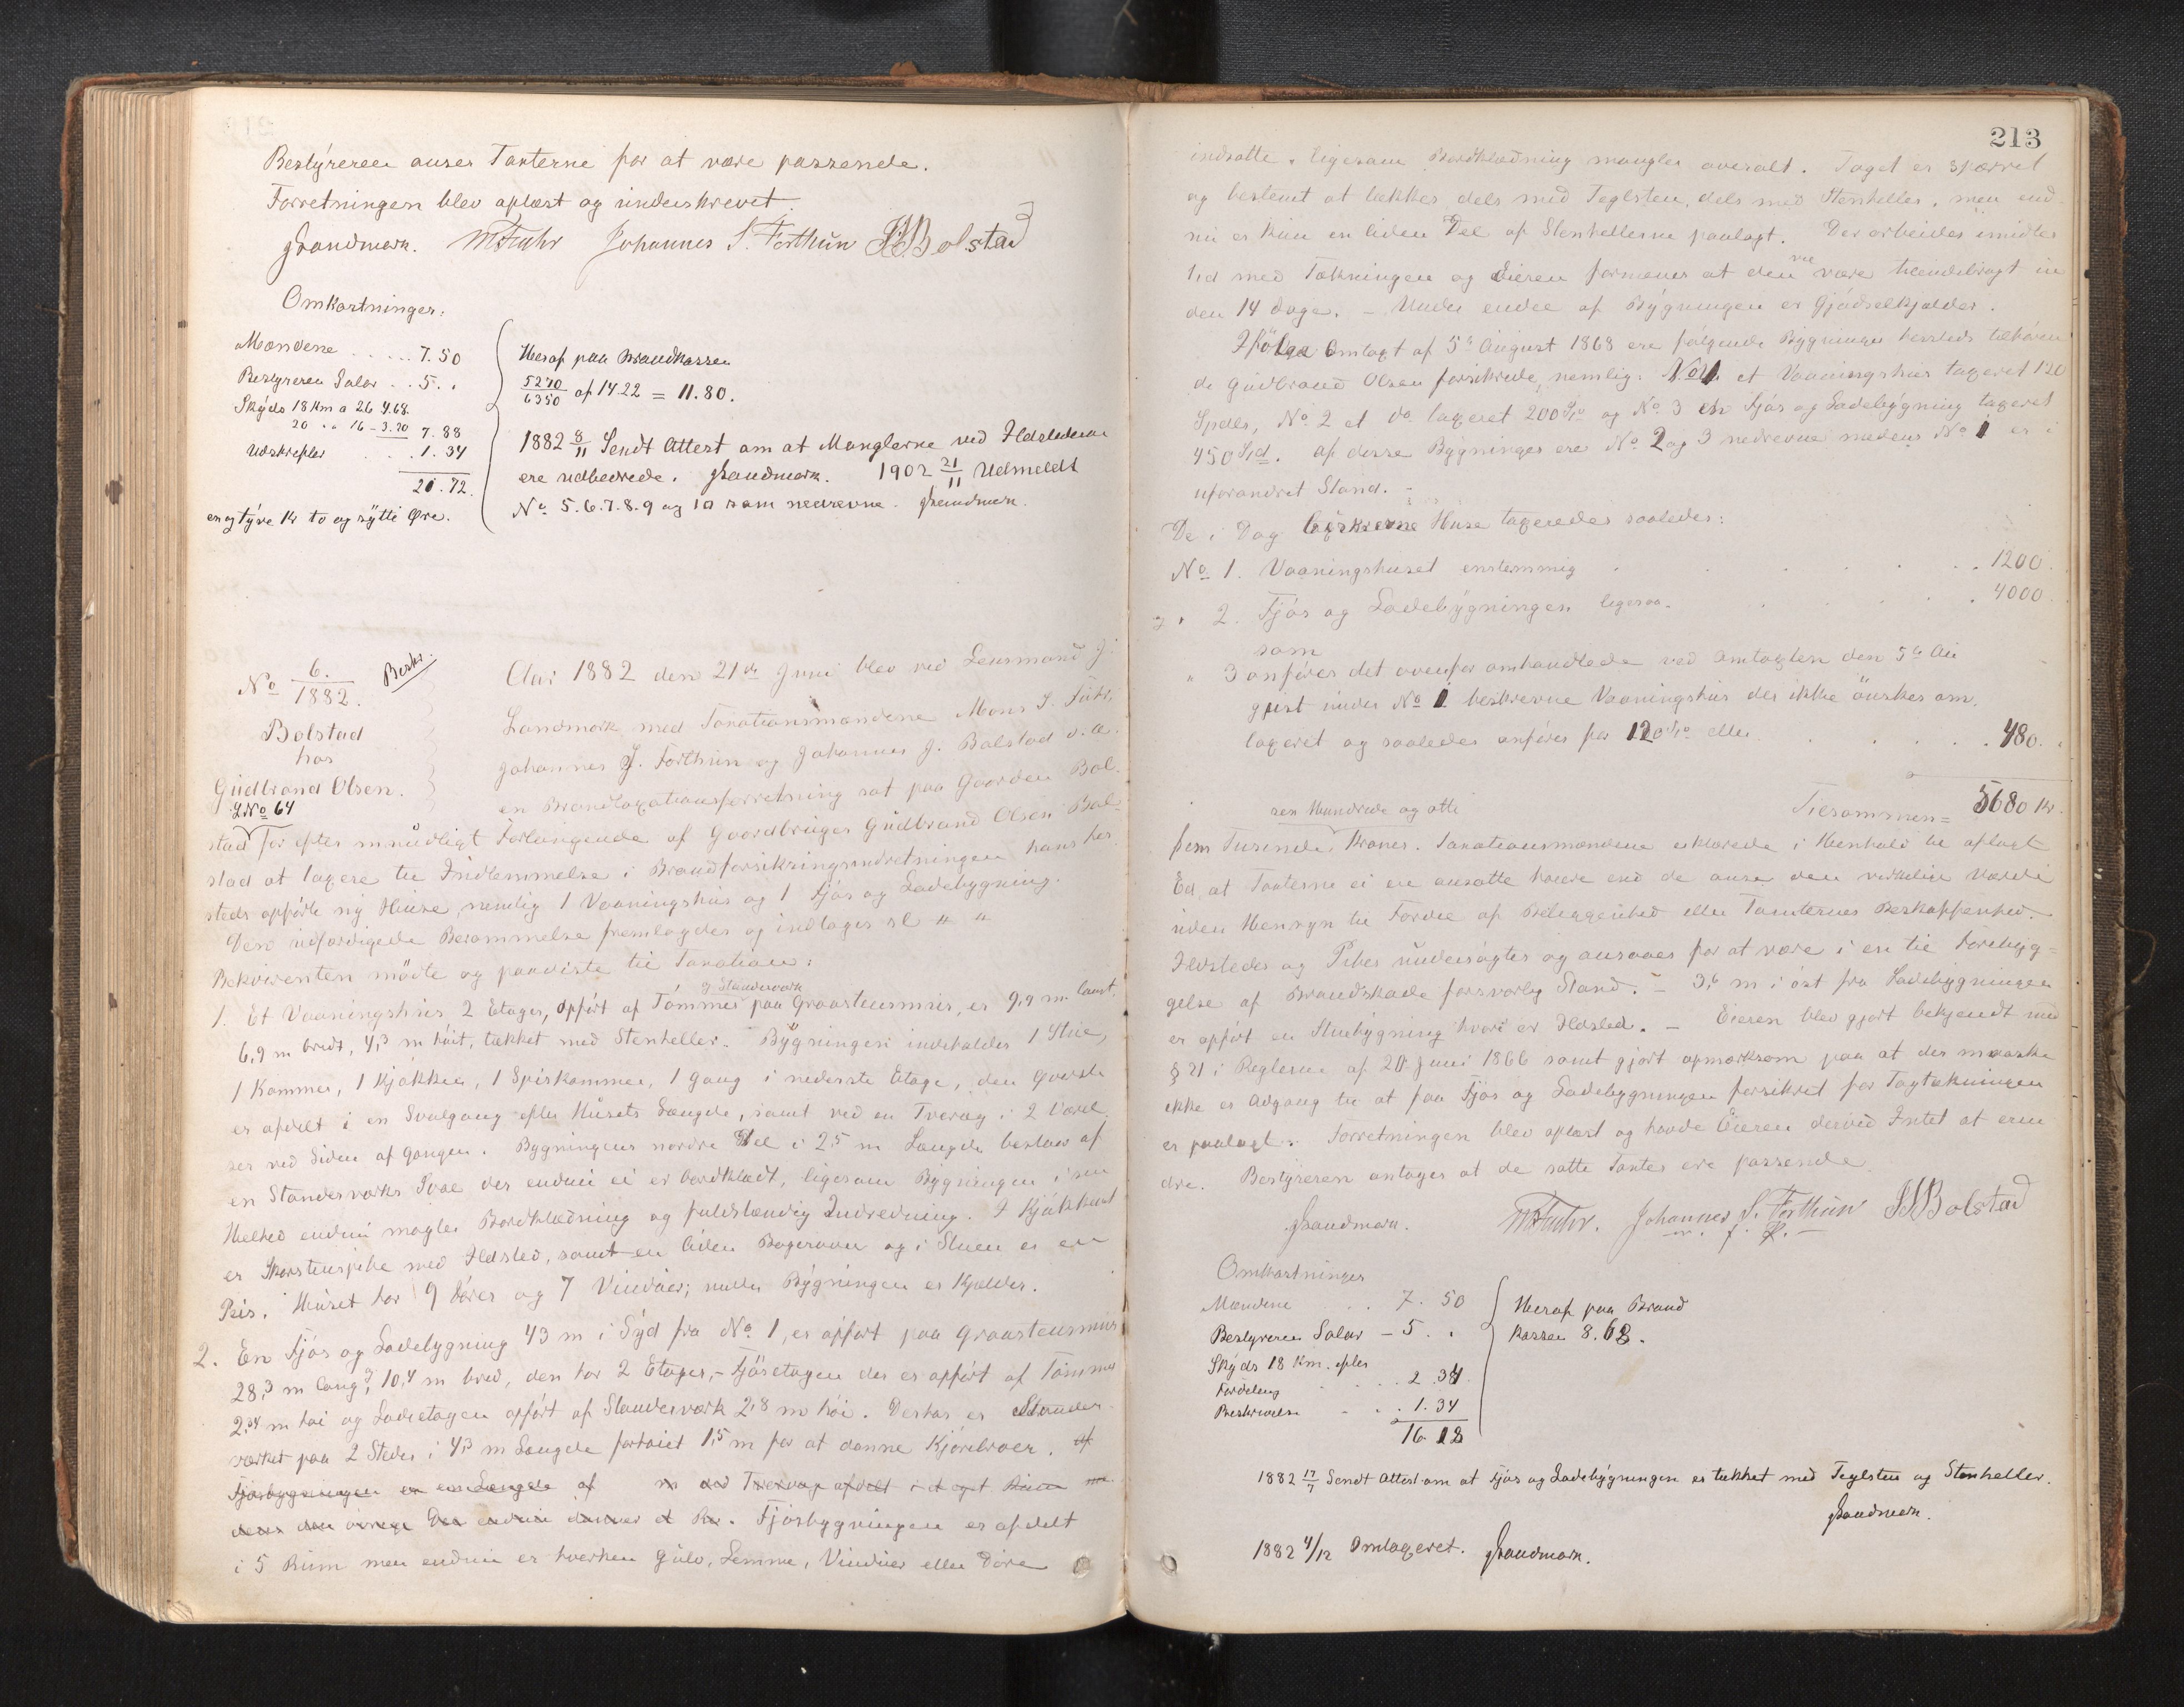 Bestÿreren anser Taxterne for at være passende.
Forretningen blev oplæst og underskrevet.
JLandmark. MFuhr Johannes S. Forthun JJBolstad
Omkostninger:
Mændene . . . . . 7.50
Bestyreren Salar . . 5. .
Skÿds 18 Km a 26 4.68.
20 " " 16 - 3.20 7.88
Udskrifter . . . 1.34
21.72.
en og tyve Kr to og sÿtti Øre.
Heraf paa Brandkassen
5270/6350 af 14.22 = 11.80.
1882 8/11 Sendt Attest om at Manglerne ved Ildstederne
ere udbedrede. JLandmark. 1902 21/11 Udmeldt
No 5.6.7.8.9 og 10 som nedrevne. JLandmark.
No 6./1882. Beskr.
Bolstad
hos
Gudbrand Olsen.
LNo 64
Aar 1882 den 21de Juni blev ved Lensmand J.
Landmark med Taxationsmændene Mons J. Fuhr,
Johannes S. Forthun og Johannes J. Bolstad o. a.
en Brandtaxationsforretning sat paa Gaarden Bol-
stad for efter mundtligt Forlangende af Gaardbruger Gudbrand Olsen Bol-
stad at taxere til Indlemmelse i Brandforsikringsindretningen hans her-
steds opførte ny Huse, nemlig 1 Vaaningshus og 1 Fjøs og Ladebygning.
Den udfærdigede Berammelse fremlagdes og indtages sl " "
Rekvirenten mødte og paaviste til Taxation:
g Standerværk
1. Et Vaaningshus 2 Etager, opført af Tømmer paa Graastensmur, er 9,9 m. langt,
6,9 m bredt, 4,3 m høit, tækket med Stenheller. Bÿgningen indeholder 1 Stue,
1 Kammer, 1 Kjøkken, 1 Spiskammer, 1 Gang i nederste Etage, den øverste
er afdelt i en Svalgang efter Husets Længde, samt ved en Tvervæg i 2 Værel-
ser ved Siden af Gangen. Bygningens nordre Del i 2,5 m Længde bestaar af
en Standerværks Sval der endnu ei er bordklædt, ligesom Bygningen i sin
Helhed endnu magler Bordklædning og fuldstændig Indredning. I Kjøkkenet
er Skorstenspibe med Ildsted, samt en liden Bagerovn og i Stuen er en
Peis. Huset har 9 Døre og 7 Vinduer; under Bÿgningen er Kjelder.
2. En Fjøs og Ladebygning 43 m i Sÿd fra No 1, er opført paa Graastensmur
28,3 m lang, 10,4 m bred, den har 2 Etager, - Fjøsetagen der er opført af Tømmer
2,34 m høi og Ladeetagen opført af Standerværk 2,8 m høi. Desto er Stander-
værket paa 2 Steder i 4,3 m Længde forhøiet 1,5 m for at danne Kjørebroer. Af
Fjøsbygningen er en Længde af m ved Tvervæg afdelt i et eget Rum me-
dens den øvrige Del endnu danner et Rum. Fjøsbygningen er afdelt
i 5 Rum men endnu er hverken Gulv, Lemme, Vinduer eller Døre
213
indsatte, ligesom Bordklædning mangler overalt. Taget er sparret
og bestemt at tækkes dels med Teglsten, dels med Stenheller, men end-
nu er kun en liden Del af Stenhellerne paalagt. Der arbeides imidler-
tid med Tækningen og Eieren formener at den vil være tilendebragt in-
den 14 Dage. - Under endel af Bÿgningen er Gjødselkjelder.
Ifølge Omtaxt af 5te August 1868 ere følgende Bygninger hersteds tilhøren-
de Gudbrand Olsen forsikrede, nemlig: No 1 et Vaaningshus taxeret 120
Spdlr, No 2 et do taxeret 200 Spd og No 3 en Fjøs og Ladebÿgning taxeret
450 Spd. Af disse Bÿgninger ere No 2 og 3 nedrevne medens No 1 er i
uforandret Stand. -
De i Dag beskrevne Huse taxeredes saaledes:
No 1. Vaaningshuset enstemmig . . . . . . 1200.
" 2. Fjøs og Ladebÿgningen ligesaa. . . . . . 4000.
som
" 3 anføres det ovenfor omhandlede ved Omtaxten den 5te Au-
gust under No 1 beskrevne Vaaningshus der ikke ønskes om-
taxeret og saaledes anføres for 120 Spd eller . . . . . . 480. .
Tilsammen = 5680 Kr.
sex Hundrede og otti
fem Tusinde Kroner. Taxationsmændene erklærede i Henhold til aflagt
Ed at Taxterne ei ere ansatte høiere end de anse den virkelige Værdi
uden Hensyn til Fordel af Beliggenhed eller Tomternes Beskaffenhed.
Ildsteder og Piber undersøgtes og ansaaes for at være i en til Forebyg-
gelse af Brandskade forsvarlig Stand. - 3,6 m i øst fra Ladebÿgningen
er opført en Stuebÿgning hvori er Ildsted. - Eieren blev gjort bekjendt med
§ 21 i Reglerne af 20 Juni 1866 samt gjort opmærksom paa at der maaske
ikke er Adgang til at faa Fjøs og Ladebygningen forsikret før Tagtækningen
er paalagt. Forretningen blev oplæst og havde Eieren derved Intet at erin-
dre. Bestÿreren antager at de satte Taxter ere passende.
JLandmark. MFuhr. Johannes S. Forthun JJBolstad
m. f. P.
Omkostninger
Mændene . . 7. 50
Bestyreren Salar - 5. .
Skÿds 18 Km. efter
Fordeling . . . . 2.34
Beskrivelse - . . 1.34
16.18
Heraf paa Brand
Kassen 8.68.
1882 17/7 Sendt Attest om at Fjøs og Ladebÿgningen er tækket med Teglsten og Stenheller.
JLandmark.
1882 4/12 Omtaxeret. JLandmark.